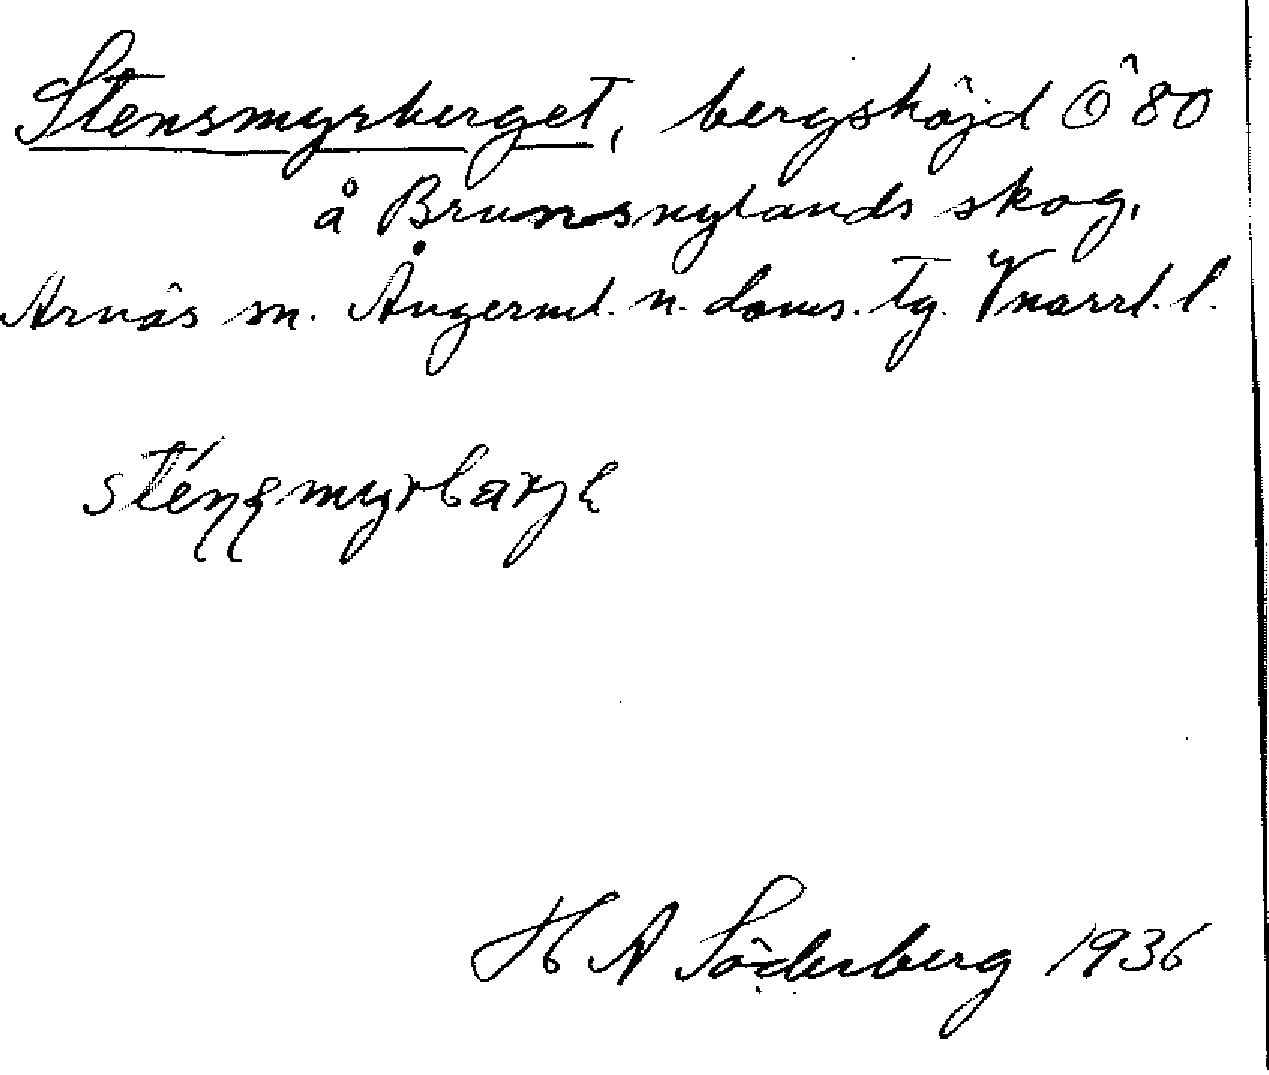 Stensmyrberget, bergshöjd Ö 80
å Brunsnylands skog,
Arnäs sn. Ångerml. n. doms. tg. Vnorrl. l.
H A Söderberg 1936